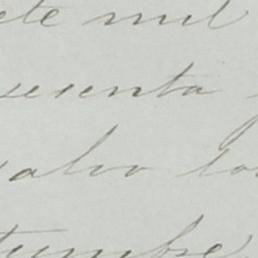 ete mil
esenta
salvo to
tumbre